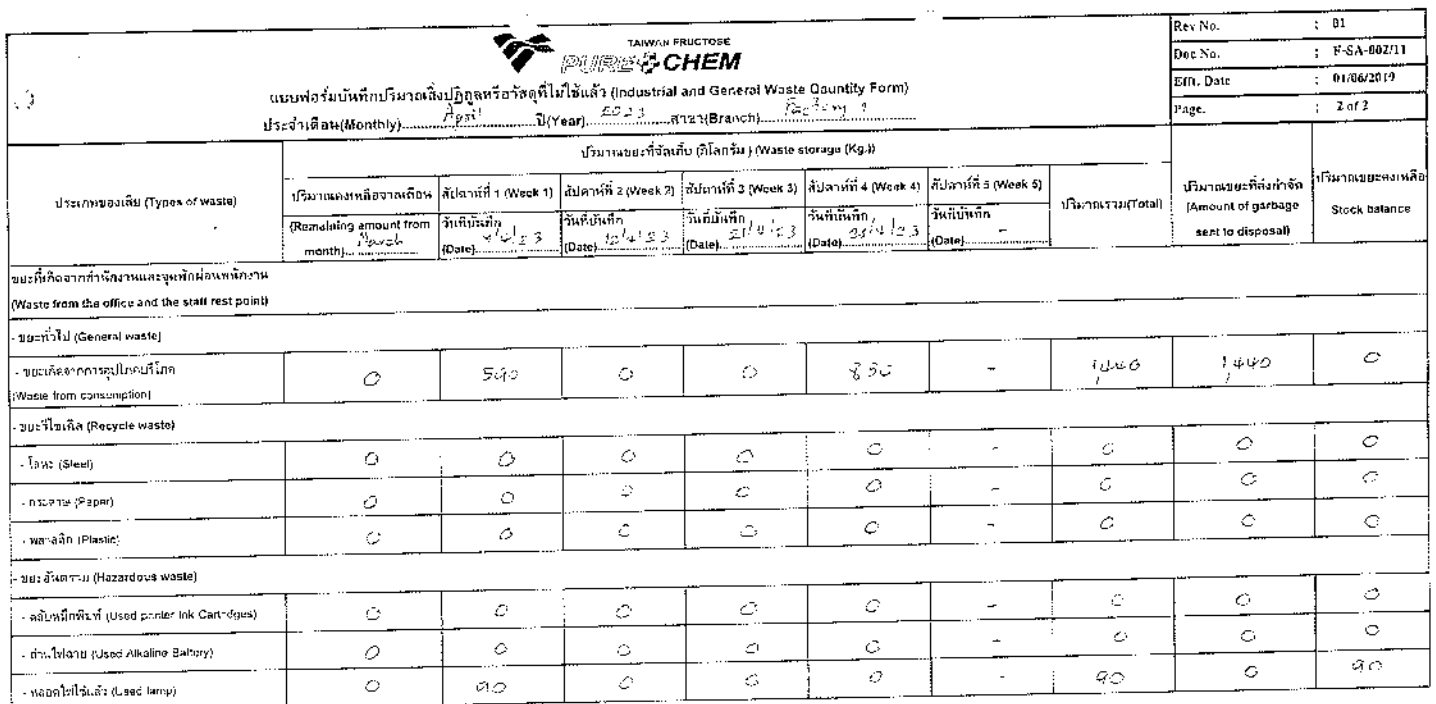 TAIWAN FRUCTOSE
PURE CHEM
Rev No. : 01
Doc No. : F-SA-002/11
Effi. Date : 01/06/2019
Page. : 2 of 2
แบบฟอร์มบันทึกปริมาณสิ่งปฏิกูลหรือวัสดุที่ไม่ใช้แล้ว (Industrial and General Waste Qauntity Form)
ประจำเดือน(Monthly) April ปี(Year) 2023 สาขา(Branch) Factory 1
ประเภทของเสีย (Types of waste)
ปริมาณขยะที่จัดเก็บ (กิโลกรัม) (Waste storage (Kg.))
ปริมาณคงเหลือจากเดือน (Remaining amount from month) March
สัปดาห์ที่ 1 (Week 1) วันที่บันทึก (Date) 4/23
สัปดาห์ที่ 2 (Week 2) วันที่บันทึก (Date) 12/4/23
สัปดาห์ที่ 3 (Week 3) วันที่บันทึก (Date) 21/4/23
สัปดาห์ที่ 4 (Week 4) วันที่บันทึก (Date) /4/23
สัปดาห์ที่ 5 (Week 5) วันที่บันทึก (Date) -
ปริมาณรวม(Total)
ปริมาณขยะที่ส่งกำจัด (Amount of garbage sent to disposal)
ปริมาณขยะคงเหลือ Stock balance
ขยะที่เกิดจากสำนักงานและจุดพักผ่อนพนักงาน
(Waste from the office and the staff rest point)
- ขยะทั่วไป (General waste)
- ขยะเกิดจากการอุปโภคบริโภค (Waste from consumption) 0 590 0 0 850 - 1,440 1,440 0
- ขยะรีไซเคิล (Recycle waste)
- โลหะ (Steel) 0 0 0 0 0 - 0 0 0
- กระดาษ (Paper) 0 0 0 0 0 - 0 0 0
- พลาสติก (Plastic) 0 0 0 0 0 - 0 0 0
- ขยะอันตราย (Hazardous waste)
- ตลับหมึกพิมพ์ (Used printer Ink Cartridges) 0 0 0 0 0 - 0 0 0
- ถ่านไฟฉาย (Used Alkaline Battery) 0 0 0 0 0 - 0 0 0
- หลอดไฟใช้แล้ว (Used lamp) 0 90 0 0 0 - 90 0 90